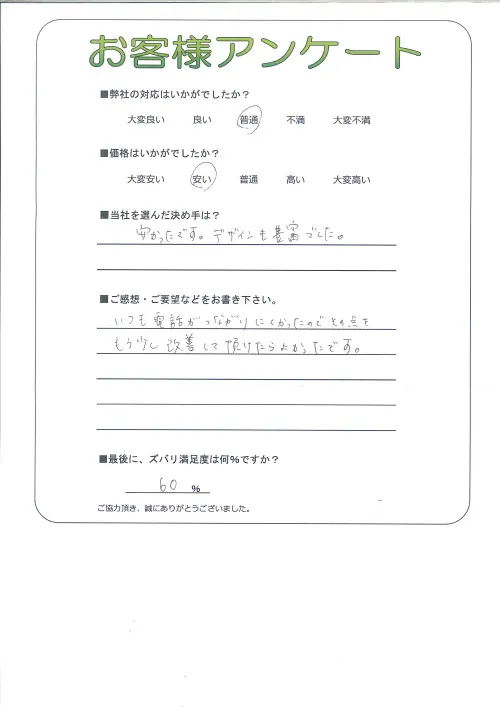 お客様アンケート
■弊社の対応はいかがでしたか？
大変良い 良い 普通 不満 大変不満
■価格はいかがでしたか？
大変安い 安い 普通 高い 大変高い
■当社を選んだ決め手は？
安かったです。デザインも豊富でした。
■ご感想・ご要望などをお書き下さい。
いつも電話がつながりにくかったのでその点を
もう少し改善して頂けたらよかったです。
■最後に、ズバリ満足度は何%ですか？
60 %
ご協力頂き、誠にありがとうございました。